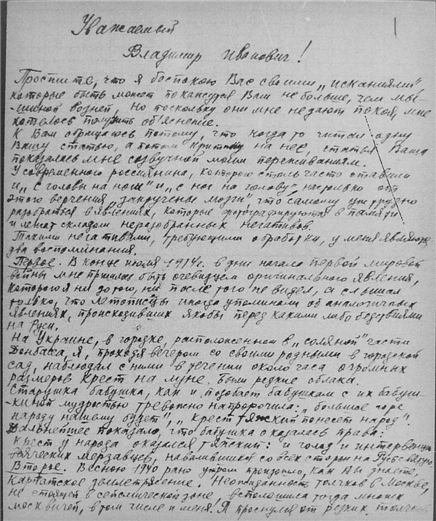 1
Уважаемый
Владимир Иванович!
Простите, что я беспокою Вас своими „исканиями"
которые быть может покажутся Вам не больше, чем мы-
возней, но поскольку они мне не дают покоя, мне
хотелось получить объяснение.
К Вам обращаюсь потому, что когда то читал одну
Вашу статью, а потом критику на нее, статья Ваша
показалась мне созвучной моим переживаниям.
У современного россиянина, которого столь часто ставили
и „с головы на ноги" и „с ног на голову" насколько от
этого верчения „закручены мозги" что самому уж трудно
разобраться в явлениях, которые фотографируются в памяти
и лежат складом неразобранных негативов.
Такими негативами, требующими обработки, у меня являются
два воспоминания.
Первое. В конце июля 1914г. в дни начала Первой мировой
войны мне пришлось быть очевидцем оригинального явления,
которого я ни до того, ни после того не видел, а слышал
только, что летописцы иногда упоминали об аналогичных
явлениях, происходивших якобы перед какими либо бедствиями
на Руси.
На Украине, в городке, расположенном в „соляной" части
Донбасса, я, проходя вечером со своими родными в городской
сад, наблюдал с ними в течении около часа огромных
размеров крест на луне. Были редкие облака.
Старушка бабушка, как и подобает бабушкам с их бабуш-
мудростью тревожно напророчила: „большое горе
народу нашему будет", „крест тяжкий понесет народ".
Дальнейшее показало, что бабушка оказалась права.
Крест у народа оказался тяжкий: и голод и интервенция
мерзавцев, навалившихся со всех сторон на Русь
Второе. Весною 1940 рано утром произошло, как Вы знаете,
Карпатское землетрясение. Неожиданность толчков в Москве,
не стоящей в сейсмической зоне, всполошила тогда многих
москвичей, в том числе и меня. Я проснулся от резких толчков